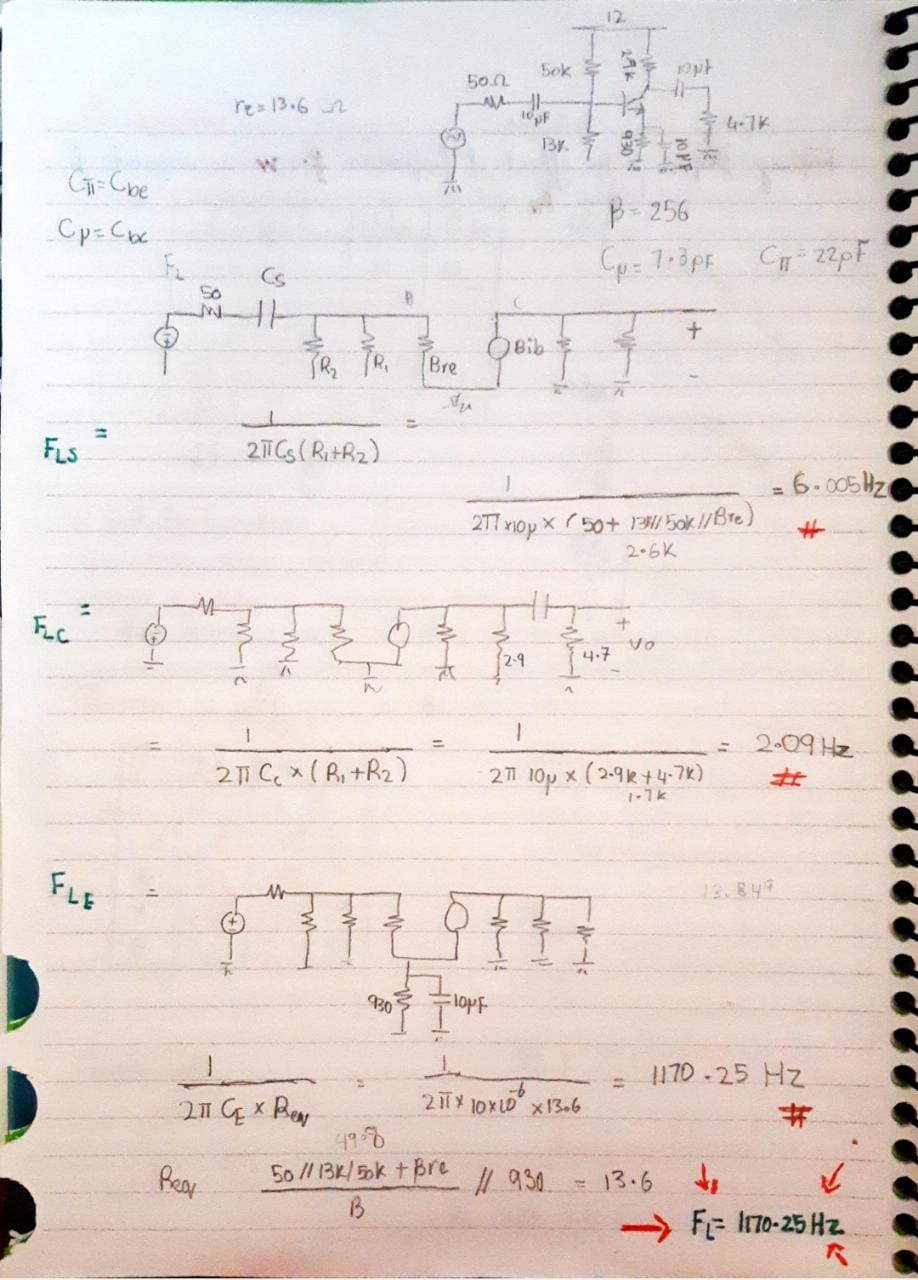 12
50Ω 50k 2.9k 10μF
re = 13.6 Ω
10μF 4.7K
13K 930 10μF
Cπ = Cbe
β = 256
Cμ = Cbc
Cμ = 7.3pF Cπ = 22pF
FL
50 Cs B C
R2 R1 Bre Bib + -
FLS = 1 / 2πCs(R1+R2) =
1 / 2π×10μ × (50 + 13k//50k//Bre) = 6.005Hz
2.6K
FLC =
2.9 4.7 + Vo -
= 1 / 2π Cc × (R1+R2) = 1 / 2π 10μ × (2.9k+4.7k) = 2.09Hz
1.7k
FLE = 13.849
930 10μF
1 / 2π CE × Req = 1 / 2π × 10×10^-6 × 13.6 = 1170.25 Hz
49.8
Req 50//13k/50k + βre / B // 930 = 13.6
→ FL = 1170.25Hz